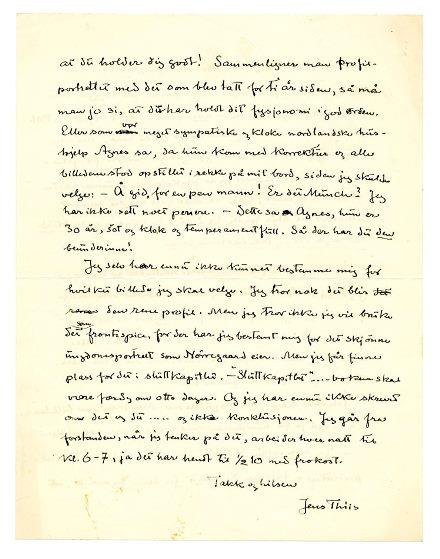 at du holder dig godt! Sammenligner man profil-
portrettet med det som blev tatt for ti år siden, så må
man jo si, at du har holdt dit fysionomi i god orden.
Eller som vor meget sympatiske og kloke nordlandske hus-
hjelp Agnes sa, da hun kom med korrektur og alle
billederne stod opstillet i rekke på mit bord, så den jeg skulde
velge: – Å gid, for en pen mann! Er det Munch? Jeg
har ikke sett noet penere. – Dette sa Agnes, hun er
30 år, søt og klok og temperamentfull. Så der har du den
beundrerinne!
Jeg selv har ennu ikke kunnet bestemme mig for
hvilket billede jeg skal velge. Jeg tror nok det blir
den rene profil. Men jeg tror ikke jeg vil bruke
det som frontispice, for der har jeg bestemt mig for det skjønne
ungdomsportrett som Nørregaard eier. Men jeg får finne
plass for det i sluttkapitlet. – "Sluttkapitlet" .... boken skal
være færdig om otto dager. Og jeg har ennu ikke skrevet
om det og det ..... og ikke konklusjonen. Jeg går fra
forstanden, når jeg tenker på det, arbeider hver natt til
kl. 6-7, ja det har hendt til ½ 10 med frokost.
Takk og hilsen
Jens Thiis